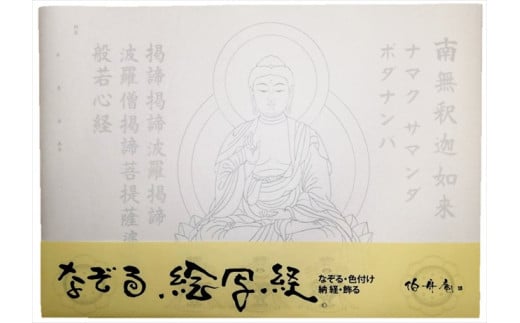 南無釈迦如来
ナマク サマンダ
ボダナンバ
掲諦掲諦波羅掲諦
波羅僧掲諦菩提薩婆
般若心経
なぞる 絵写経
なぞる・色付け
納経・飾る